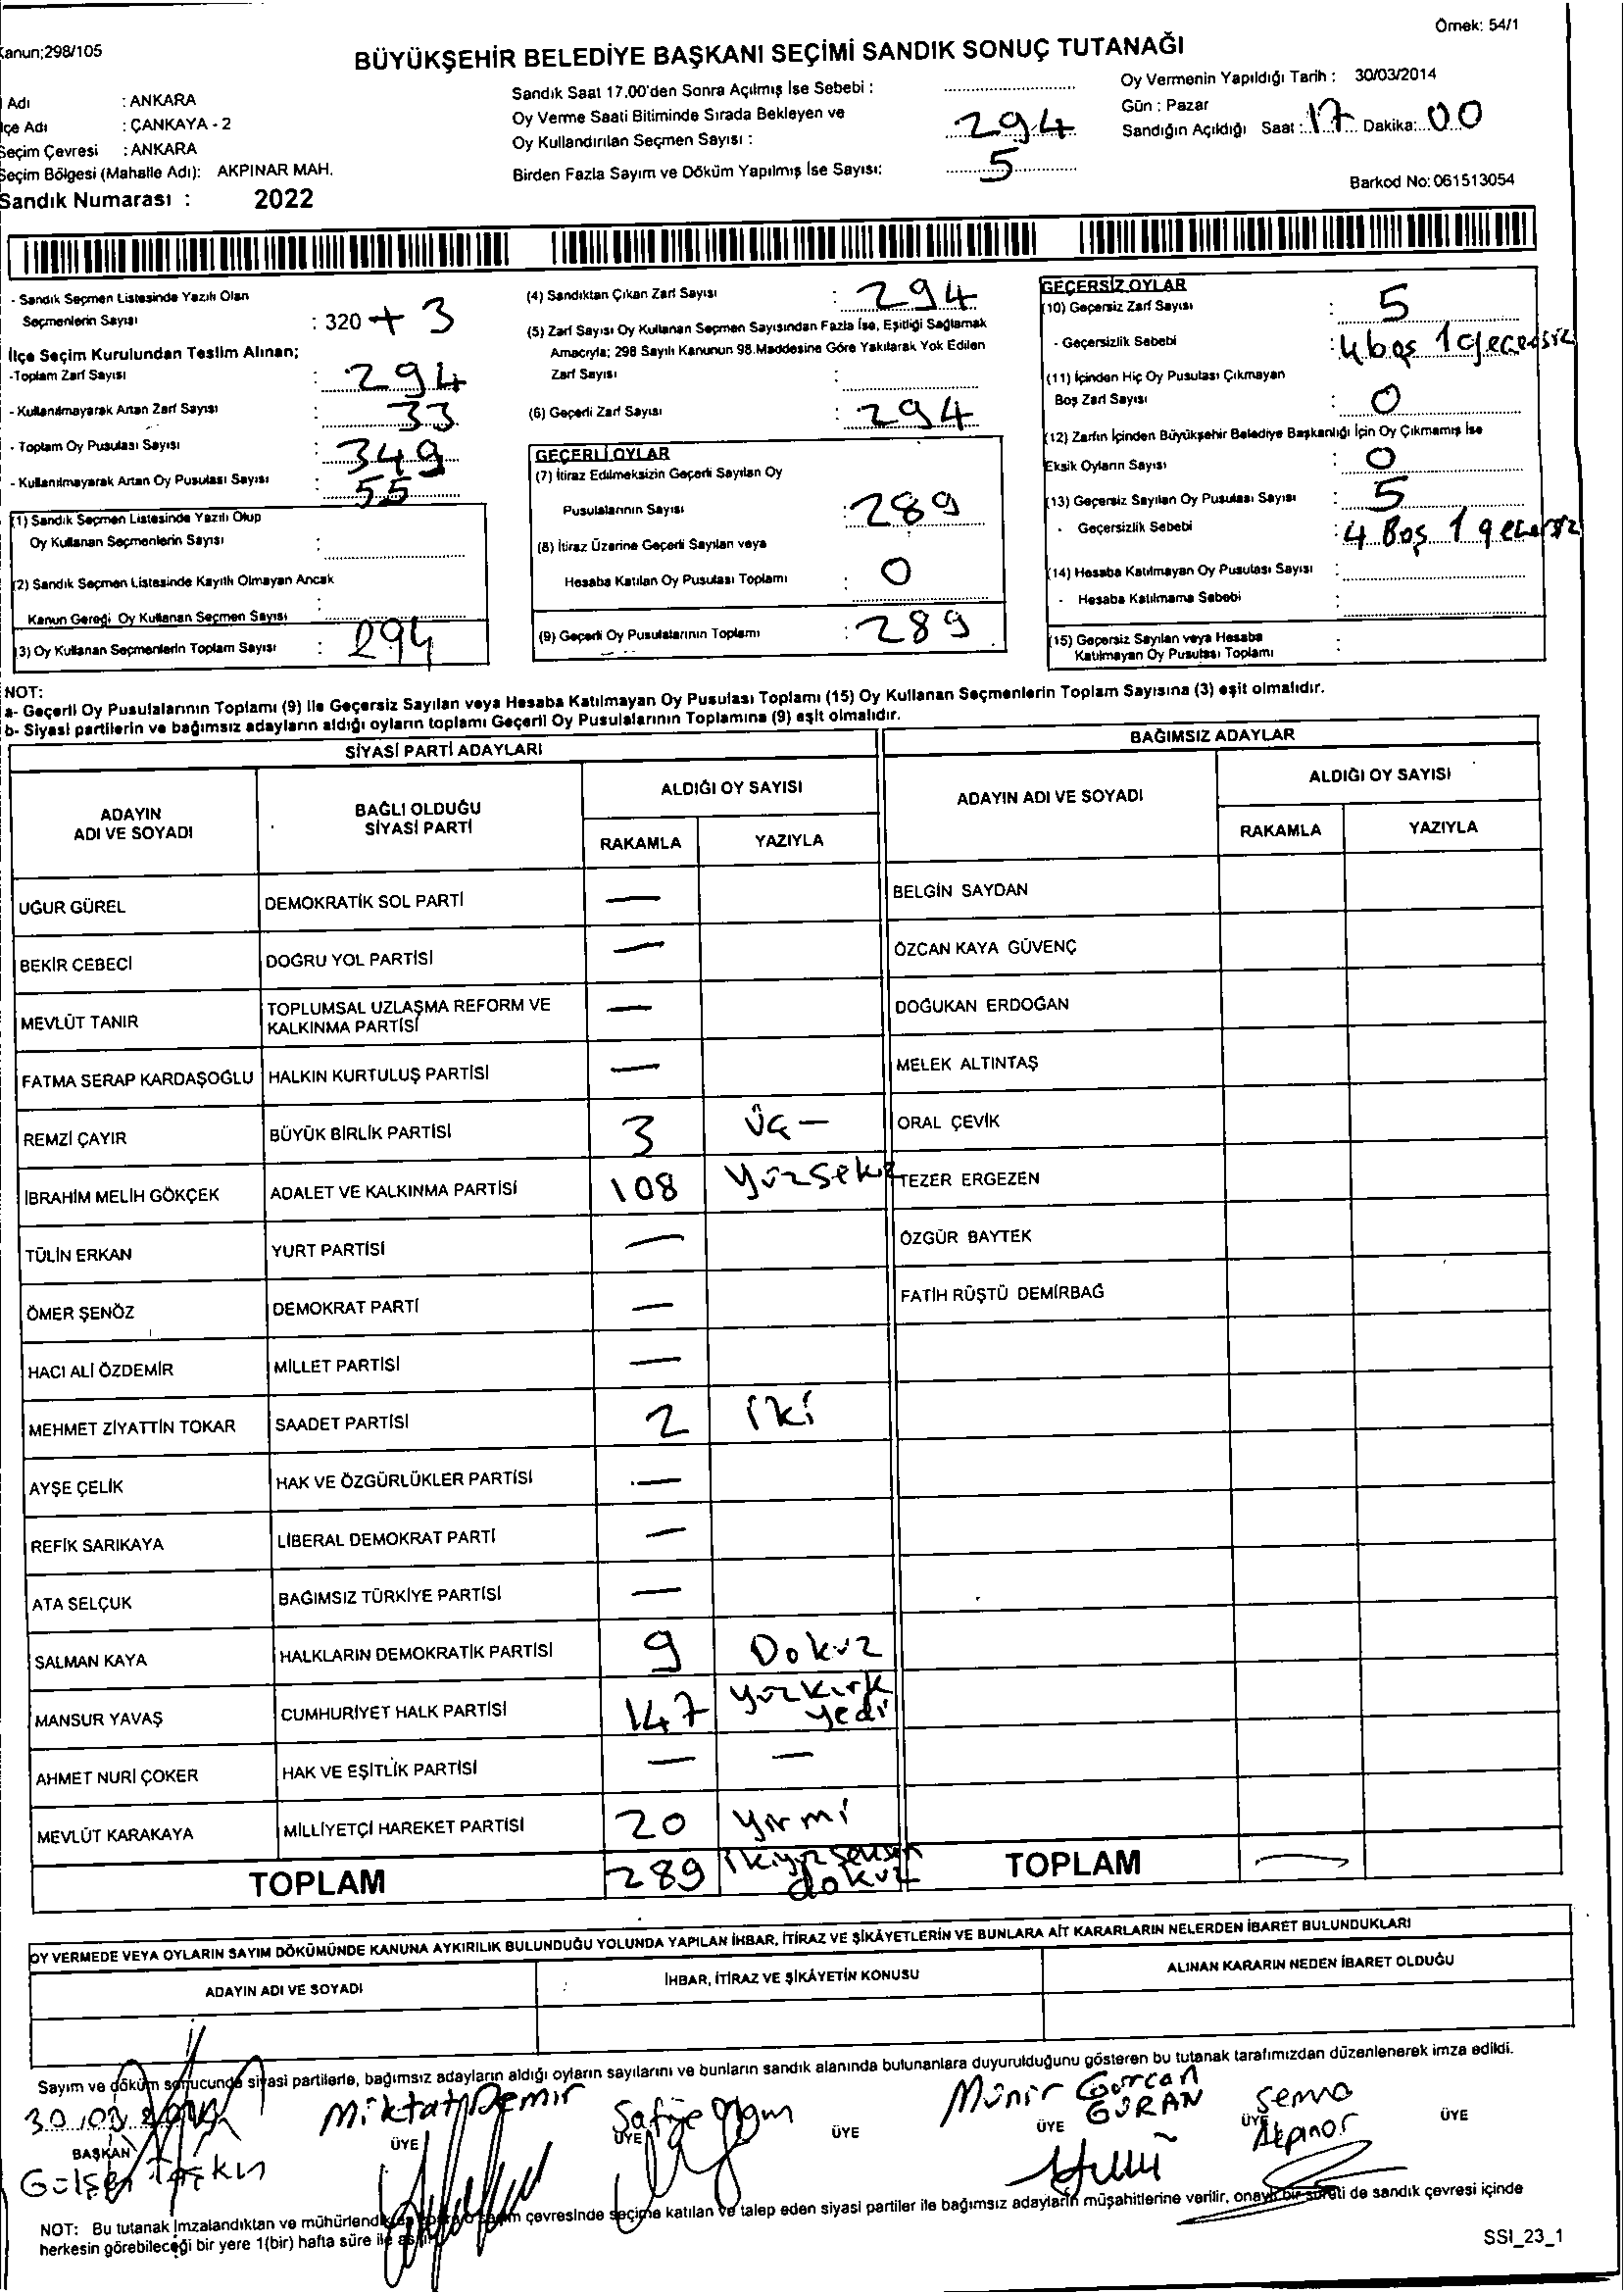 Örnek: 54/1
Kanun;298/105
BÜYÜKŞEHİR BELEDİYE BAŞKANI SEÇİMİ SANDIK SONUÇ TUTANAĞI
Adı : ANKARA
İlçe Adı : ÇANKAYA - 2
Seçim Çevresi : ANKARA
Seçim Bölgesi (Mahalle Adı): AKPINAR MAH.
Sandık Numarası : 2022
Sandık Saat 17.00'den Sonra Açılmış İse Sebebi :
Oy Verme Saati Bitiminde Sırada Bekleyen ve
Oy Kullandırılan Seçmen Sayısı : 294
Birden Fazla Sayım ve Döküm Yapılmış İse Sayısı: 5
Oy Vermenin Yapıldığı Tarih : 30/03/2014
Gün : Pazar
Sandığın Açıldığı Saat : 17 Dakika: 00
Barkod No: 061513054
- Sandık Seçmen Listesinde Yazılı Olan
Seçmenlerin Sayısı : 320 + 3
İlçe Seçim Kurulundan Teslim Alınan;
-Toplam Zarf Sayısı : 294
- Kullanılmayarak Artan Zarf Sayısı : 33
- Toplam Oy Pusulası Sayısı : 349
- Kullanılmayarak Artan Oy Pusulası Sayısı : 55
(1) Sandık Seçmen Listesinde Yazılı Olup
Oy Kullanan Seçmenlerin Sayısı :
(2) Sandık Seçmen Listesinde Kayıtlı Olmayan Ancak
Kanun Gereği Oy Kullanan Seçmen Sayısı :
(3) Oy Kullanan Seçmenlerin Toplam Sayısı : 294
(4) Sandıktan Çıkan Zarf Sayısı : 294
(5) Zarf Sayısı Oy Kullanan Seçmen Sayısından Fazla İse, Eşitliği Sağlamak
Amacıyla; 298 Sayılı Kanunun 98.Maddesine Göre Yakılarak Yok Edilen
Zarf Sayısı :
(6) Geçerli Zarf Sayısı : 294
GEÇERLİ OYLAR
(7) İtiraz Edilmeksizin Geçerli Sayılan Oy
Pusulalarının Sayısı : 289
(8) İtiraz Üzerine Geçerli Sayılan veya
Hesaba Katılan Oy Pusulası Toplamı : 0
(9) Geçerli Oy Pusulalarının Toplamı : 289
GEÇERSİZ OYLAR
(10) Geçersiz Zarf Sayısı : 5
- Geçersizlik Sebebi : 4 boş 1 gecersiz
(11) İçinden Hiç Oy Pusulası Çıkmayan
Boş Zarf Sayısı : 0
(12) Zarfın İçinden Büyükşehir Belediye Başkanlığı İçin Oy Çıkmamış İse
Eksik Oyların Sayısı : 0
(13) Geçersiz Sayılan Oy Pusulası Sayısı : 5
- Geçersizlik Sebebi : 4 Boş 1 gecersiz
(14) Hesaba Katılmayan Oy Pusulası Sayısı :
- Hesaba Katılmama Sebebi :
(15) Geçersiz Sayılan veya Hesaba
Katılmayan Oy Pusulası Toplamı :
NOT:
a- Geçerli Oy Pusulalarının Toplamı (9) ile Geçersiz Sayılan veya Hesaba Katılmayan Oy Pusulası Toplamı (15) Oy Kullanan Seçmenlerin Toplam Sayısına (3) eşit olmalıdır.
b- Siyasi partilerin ve bağımsız adayların aldığı oyların toplamı Geçerli Oy Pusulalarının Toplamına (9) eşit olmalıdır.
SİYASİ PARTİ ADAYLARI
ADAYIN
ADI VE SOYADI
BAĞLI OLDUĞU
SİYASİ PARTİ
ALDIĞI OY SAYISI
RAKAMLA YAZIYLA
UĞUR GÜREL DEMOKRATİK SOL PARTİ —
BEKİR CEBECİ DOĞRU YOL PARTİSİ —
MEVLÜT TANIR TOPLUMSAL UZLAŞMA REFORM VE
KALKINMA PARTİSİ —
FATMA SERAP KARDAŞOĞLU HALKIN KURTULUŞ PARTİSİ —
REMZİ ÇAYIR BÜYÜK BİRLİK PARTİSİ 3 Üç —
İBRAHİM MELİH GÖKÇEK ADALET VE KALKINMA PARTİSİ 108 yüzsekiz
TÜLİN ERKAN YURT PARTİSİ —
ÖMER ŞENÖZ DEMOKRAT PARTİ —
HACI ALİ ÖZDEMİR MİLLET PARTİSİ —
MEHMET ZİYATTİN TOKAR SAADET PARTİSİ 2 iki
AYŞE ÇELİK HAK VE ÖZGÜRLÜKLER PARTİSİ —
REFİK SARIKAYA LİBERAL DEMOKRAT PARTİ —
ATA SELÇUK BAĞIMSIZ TÜRKİYE PARTİSİ —
SALMAN KAYA HALKLARIN DEMOKRATİK PARTİSİ 9 Dokuz
MANSUR YAVAŞ CUMHURİYET HALK PARTİSİ 147 yüzkırk
yedi
AHMET NURİ ÇOKER HAK VE EŞİTLİK PARTİSİ — —
MEVLÜT KARAKAYA MİLLİYETÇİ HAREKET PARTİSİ 20 yirmi
TOPLAM 289 ikiyüzseksen
dokuz
BAĞIMSIZ ADAYLAR
ADAYIN ADI VE SOYADI
ALDIĞI OY SAYISI
RAKAMLA YAZIYLA
BELGİN SAYDAN
ÖZCAN KAYA GÜVENÇ
DOĞUKAN ERDOĞAN
MELEK ALTINTAŞ
ORAL ÇEVİK
TEZER ERGEZEN
ÖZGÜR BAYTEK
FATİH RÜŞTÜ DEMİRBAĞ
TOPLAM —
OY VERMEDE VEYA OYLARIN SAYIM DÖKÜMÜNDE KANUNA AYKIRILIK BULUNDUĞU YOLUNDA YAPILAN İHBAR, İTİRAZ VE ŞİKÂYETLERİN VE BUNLARA AİT KARARLARIN NELERDEN İBARET BULUNDUKLARI
ADAYIN ADI VE SOYADI İHBAR, İTİRAZ VE ŞİKÂYETİN KONUSU ALINAN KARARIN NEDEN İBARET OLDUĞU
Sayım ve döküm sonucunda siyasi partilerle, bağımsız adayların aldığı oyların sayılarını ve bunların sandık alanında bulunanlara duyurulduğunu gösteren bu tutanak tarafımızdan düzenlenerek imza edildi.
30.03.2014 Miktat Demir Safiye Münir Gürcan Sema
GÜRAN Akpınar
BAŞKAN ÜYE ÜYE ÜYE ÜYE ÜYE ÜYE
Gülşen Taşkın
NOT: Bu tutanak İmzalandıktan ve mühürlendikten çevresinde seçime katılan ve talep eden siyasi partiler ile bağımsız adayların müşahitlerine verilir, onaylı bir sureti de sandık çevresi içinde
herkesin görebileceği bir yere 1(bir) hafta süre ile asılır.
SSI_23_1